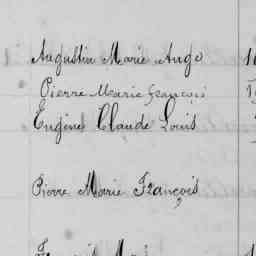 Augustin Marie Ange
Pierre Marie François
Eugène Claude Louis
Pierre Marie François